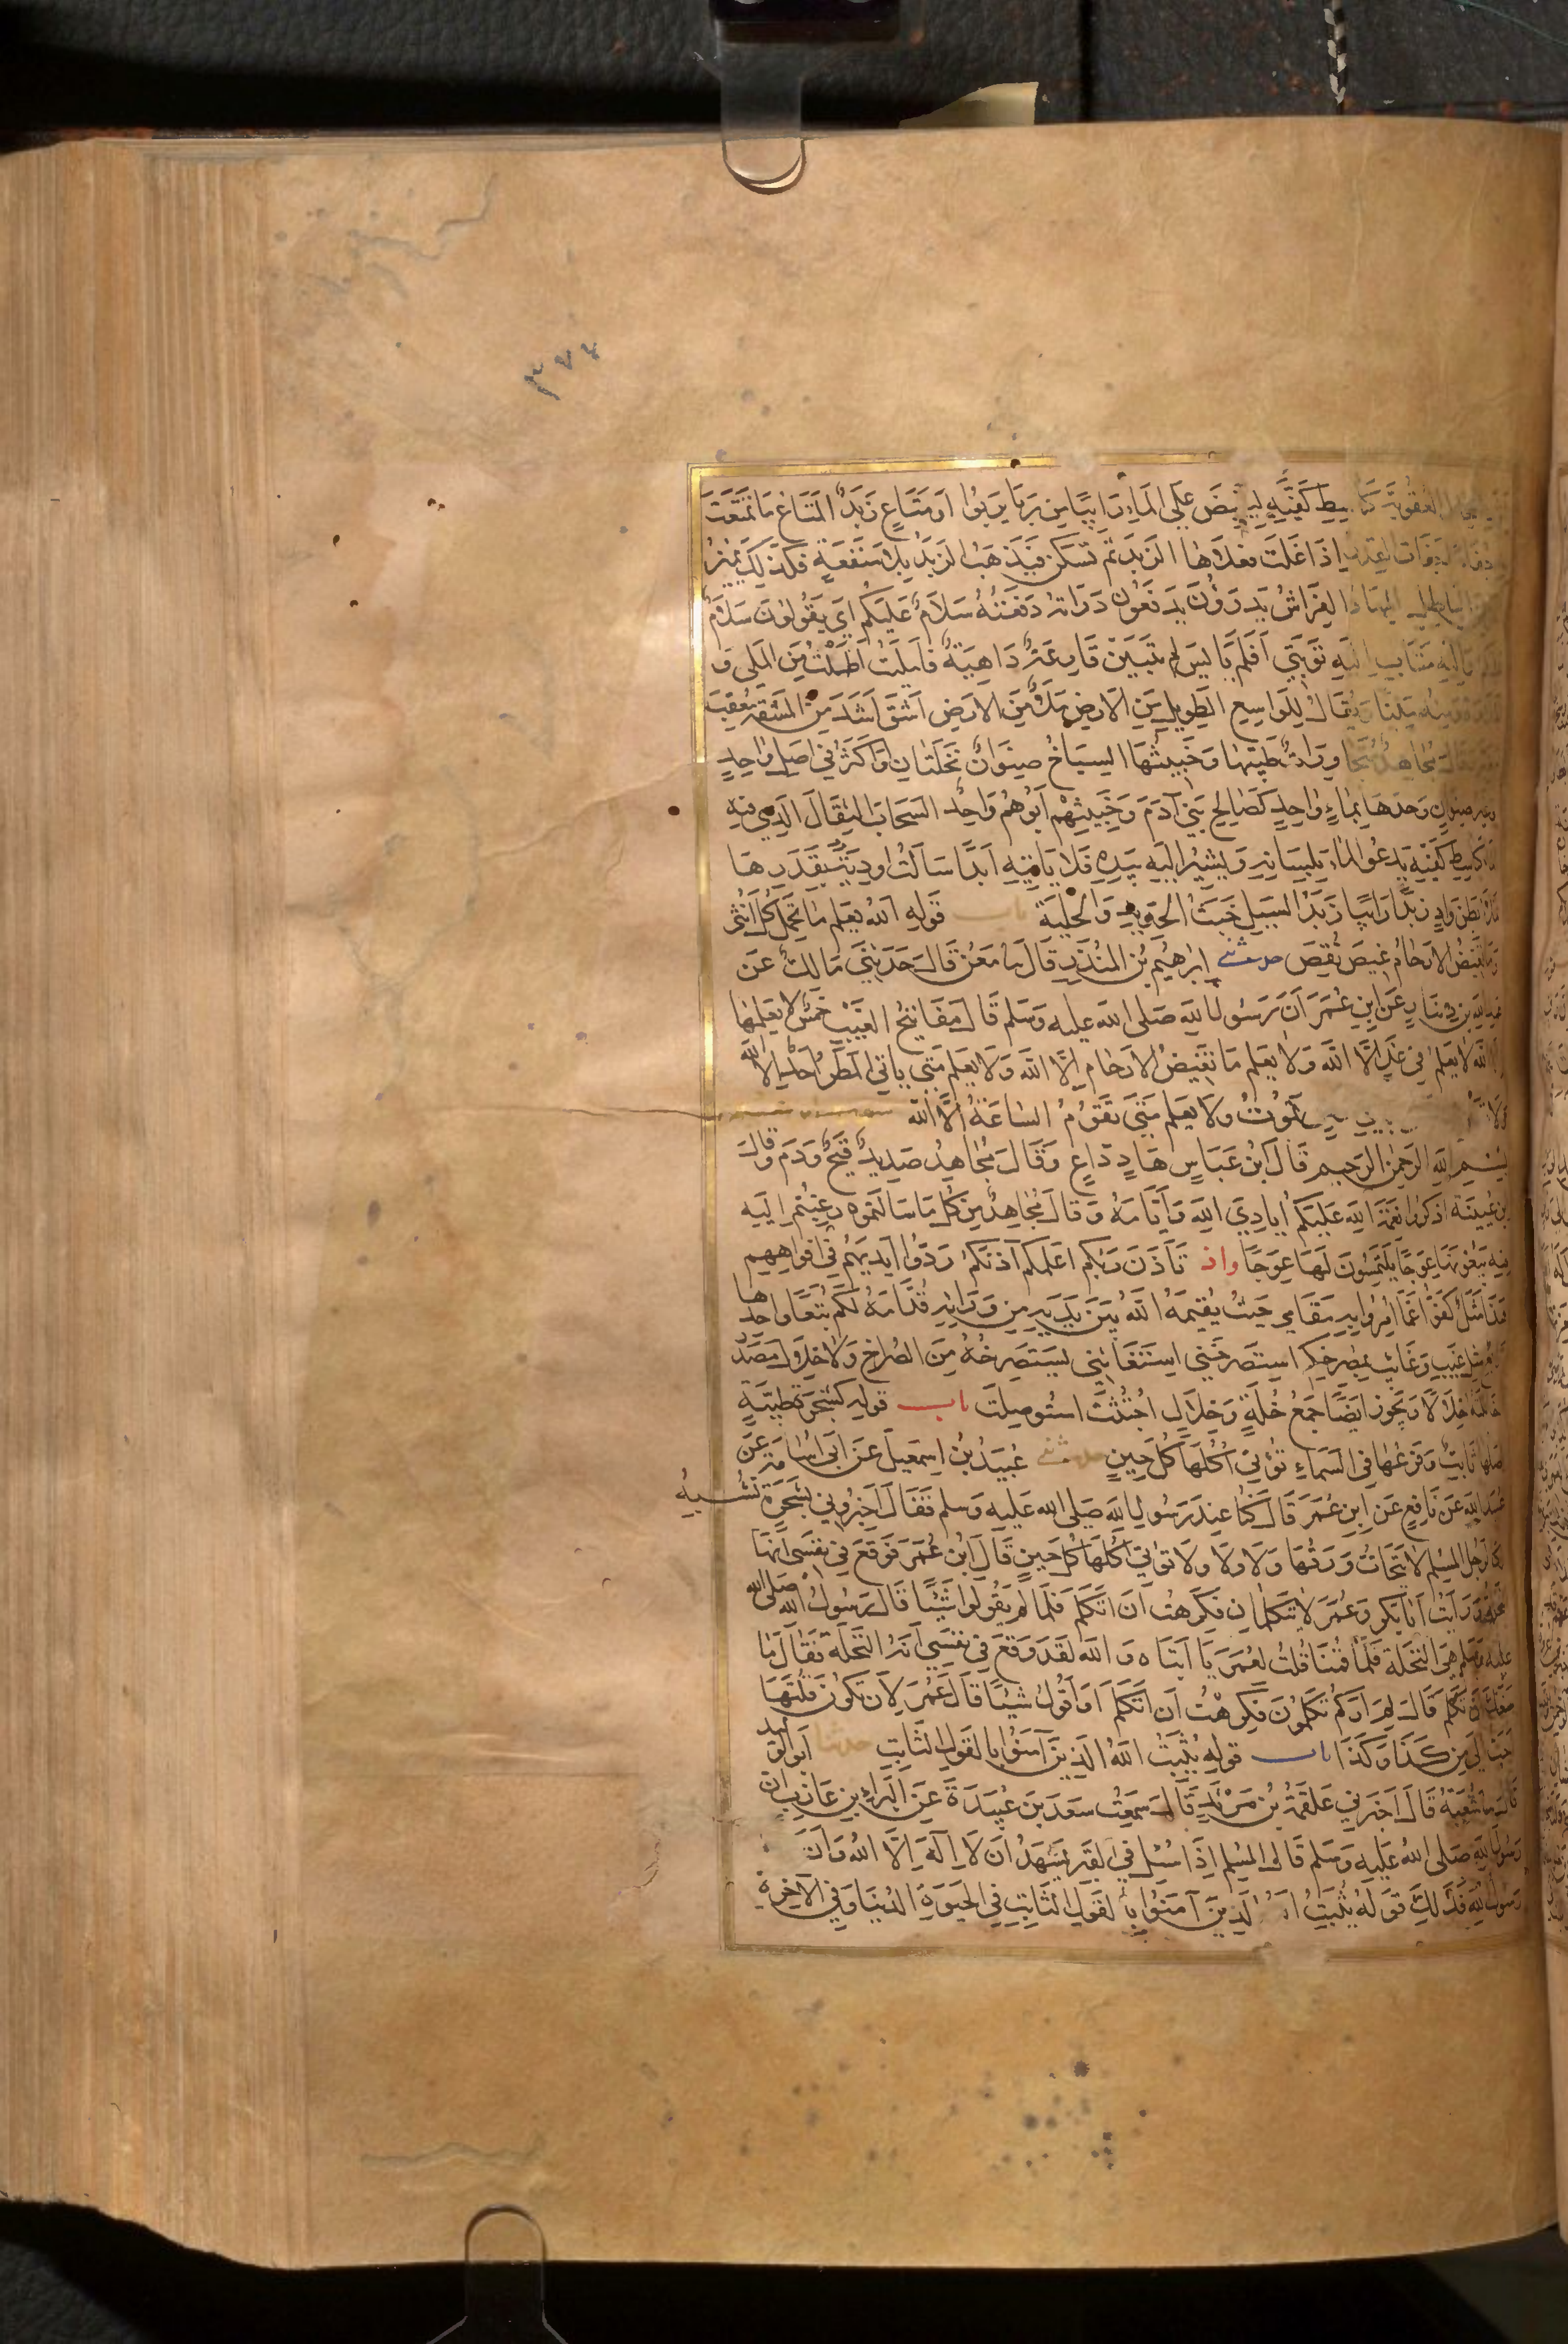 ٣٧٤
العقوبة كباسط كفيه ليقبض على الماء رابيا من ربا يربوا او متاع زبد المتاع ما تمتعت
اذا غلت فعلاها الزبد ثم تسكن فيذهب الزبد بلا منفعة فكذلك يميز
المهاد الفراش يدرؤن يدفعون درأته دفعته سلام عليكم اي يقولون سلام
متاب اليه توبتي افلم ييأس لم يتبين قارعة داهية فامليت اطلت من الملي و
ويقال للواسع الطويل من الارض ملى من الارض اشق اشد من المشقة معقب
مجاهد متجاورات طيبها وخبيثها السباخ صنوان نخلتان او اكثر في اصل واحد
وغير صنوان وحدها بماء واحد كصالح بني آدم وخبيثهم ابوهم واحد السحاب الثقال الذي فيه
كباسط كفيه يدعو الماء بلسانه ويشير اليه بيده فلا ياتيه ابدا سالت اودية بقدرها
بطن واد زبدا رابيا زبد السيل خبث الحديد والحلية باب قوله الله يعلم ما تحمل كل انثى
وما تغيض الارحام غيض نقص حدثني ابرهيم بن المنذر قال نا معن قال حدثني مالك عن
عبد الله بن دينار عن ابن عمر ان رسول الله صلى الله عليه وسلم قال مفاتيح الغيب خمس لا يعلمها
الا الله لا يعلم في غد الا الله ولا يعلم ما تغيض الارحام الا الله ولا يعلم متى ياتي المطر احد الا الله
ولا تموت ولا يعلم متى تقوم الساعة الا الله
بسم الله الرحمن الرحيم قال ابن عباس هاد داع وقال مجاهد صديد قيح ودم وقال
ابن عيينة اذكروا نعمة الله عليكم أيادي الله وأيامه وقال مجاهد من كل ما سالتموه رغبتم اليه
فيه يبغونها عوجا يلتمسون لها عوجا واذ تأذن ربكم اعلمكم آذنكم ردوا ايديهم في افواههم
هذا مثل كفوا عما امروا به مقامي حيث يقيمه الله بين يديه من ورائه قدامه لكم تبعا واحدها
تابع مثل غيب وغائب بمصرخكم استصرخني استغاثني يستصرخه من الصراخ ولا خلال مصدر
خاللته خلالا ويجوز ايضا جمع خلة وخلال اجتثت استوصلت باب قوله كشجرة طيبة
اصلها ثابت وفرعها في السماء تؤتي اكلها كل حين حدثني عبيد بن اسمعيل عن ابي اسامة عن
عبيد الله عن نافع عن ابن عمر قال كنا عند رسول الله صلى الله عليه وسلم فقال اخبروني بشجرة تشبه
كالرجل المسلم لا يتحات ورقها ولا ولا ولا تؤتي اكلها كل حين قال ابن عمر فوقع في نفسي انها
النخلة ورأيت ابا بكر وعمر لا يتكلمان فكرهت ان اتكلم فلما لم يقولوا شيئا قال رسول الله صلى الله
عليه وسلم هي النخلة فلما قمنا قلت لعمر يا ابتاه والله لقد وقع في نفسي انه النخلة فقال ما
منعك ان تكلم قال لم اركم تكلمون فكرهت ان اتكلم او اقول شيئا قال عمر لان تكون قلتها
احب الي من كذا وكذا باب قوله يثبت الله الذين آمنوا بالقول الثابت حدثنا ابو الوليد
قال نا شعبة قال اخبرني علقمة بن مرثد قال سمعت سعد بن عبيدة عن البراء بن عازب ان
رسول الله صلى الله عليه وسلم قال المسلم اذا سئل في القبر يشهد ان لا اله الا الله وان
رسول الله فذلك قوله يثبت الله الذين آمنوا بالقول الثابت في الحيوة الدنيا وفي الآخرة